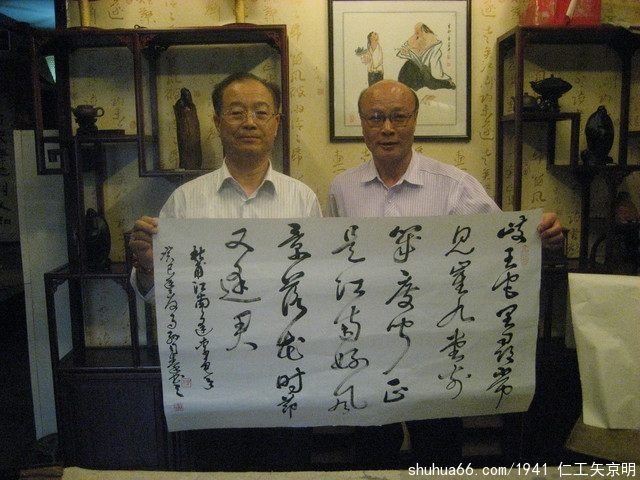 岐王宅里尋常
見崔九堂前
幾度聞正
是江南好風
景落花时節
又逢君
杜甫江南逢李龟年
癸巳年
shuhua66.com/1941 仁工矢京明